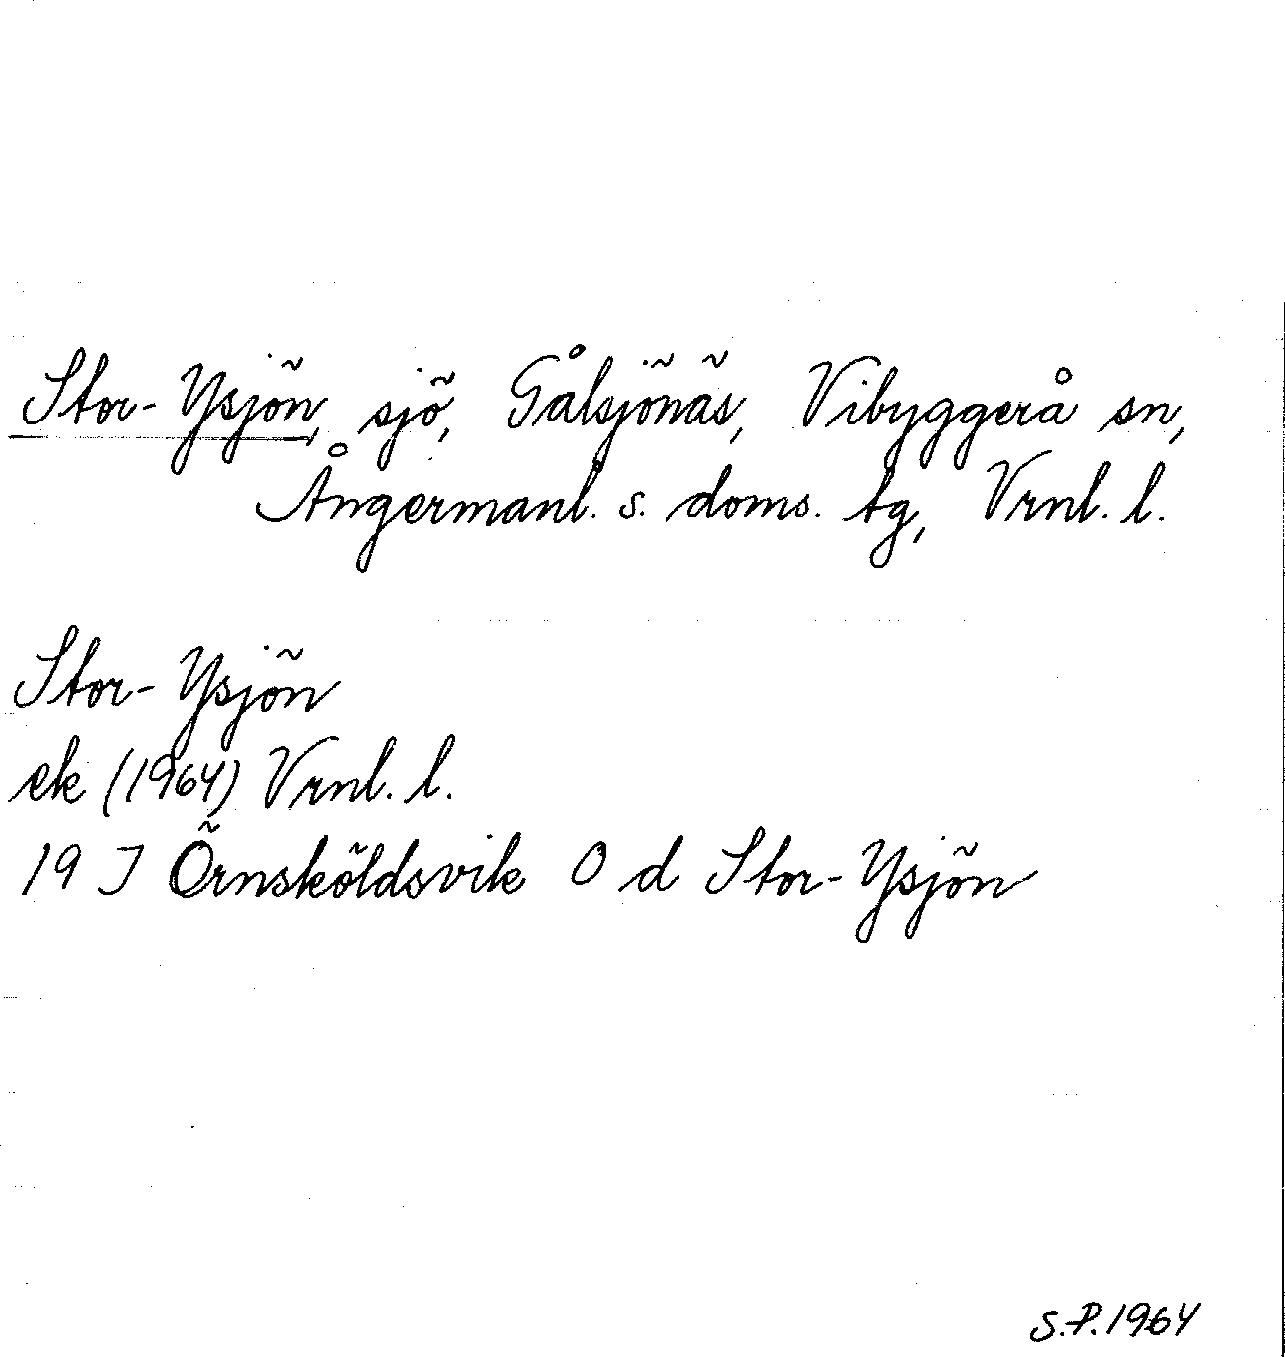 Stor-Ysjön, sjö, Gålsjönäs, Vibyggerå sn,
Ångermanl. s. doms. tg, Vrnl. l.
Stor-Ysjön
ek (1964) Vrnl. l.
19 J Örnsköldsvik 0 d Stor-Ysjön
S.P. 1964